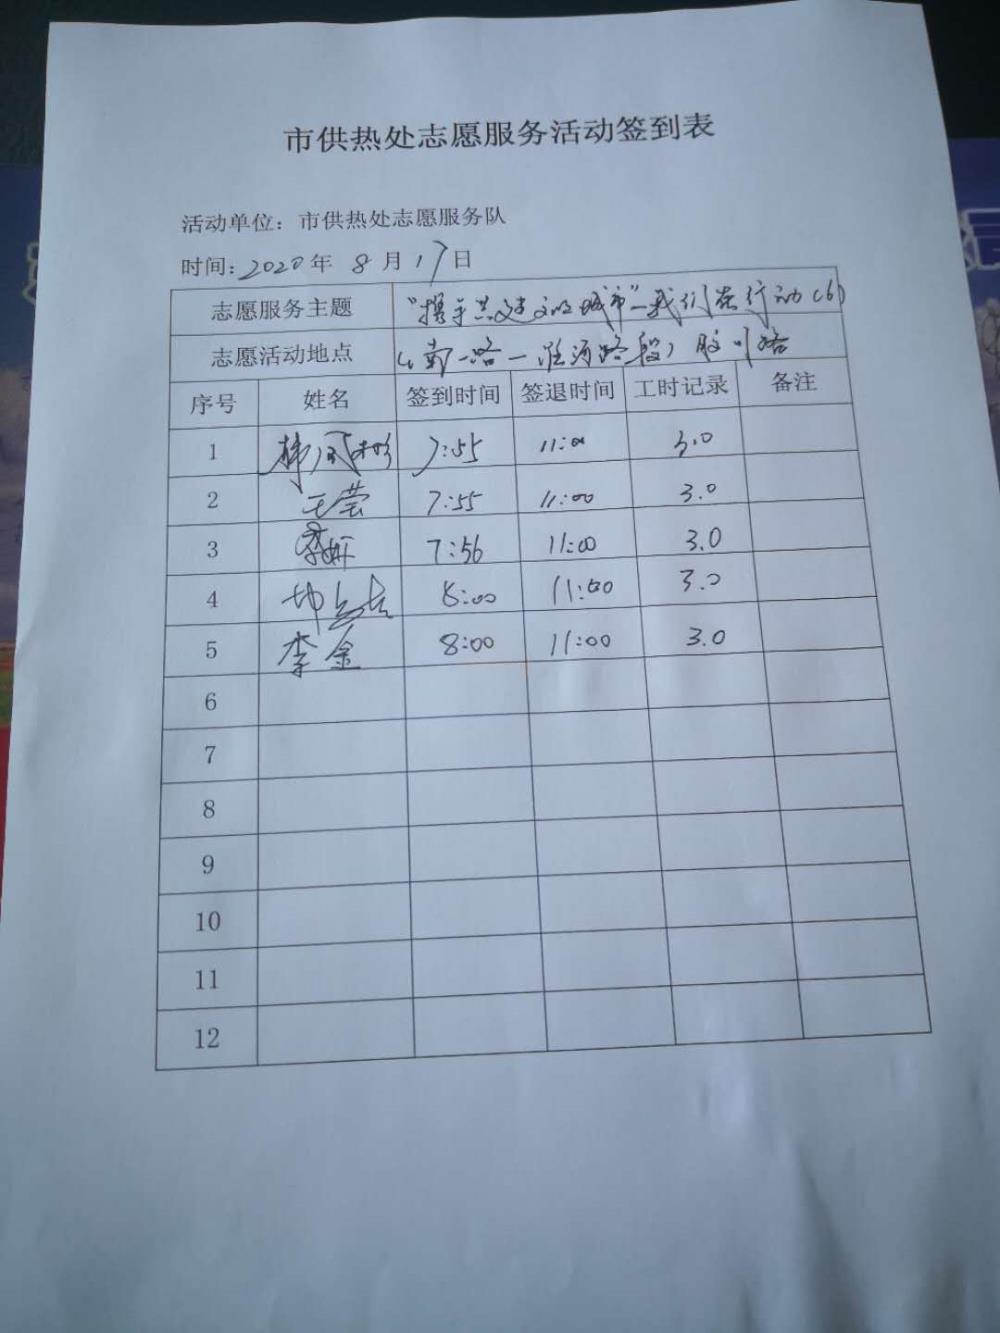 市供热处志愿服务活动签到表
活动单位：市供热处志愿服务队
时间：2020年 8月17日
志愿服务主题 "携手共建文明城市"—我们在行动(6)
志愿活动地点 一路—淮河路段）胶州路
序号 姓名 签到时间 签退时间 工时记录 备注
1 韩凤彬 7:55 11:00 3.0
2 王莹 7:55 11:00 3.0
3 李妍 7:56 11:00 3.0
4 8:00 11:00 3.0
5 李金 8:00 11:00 3.0
6
7
8
9
10
11
12